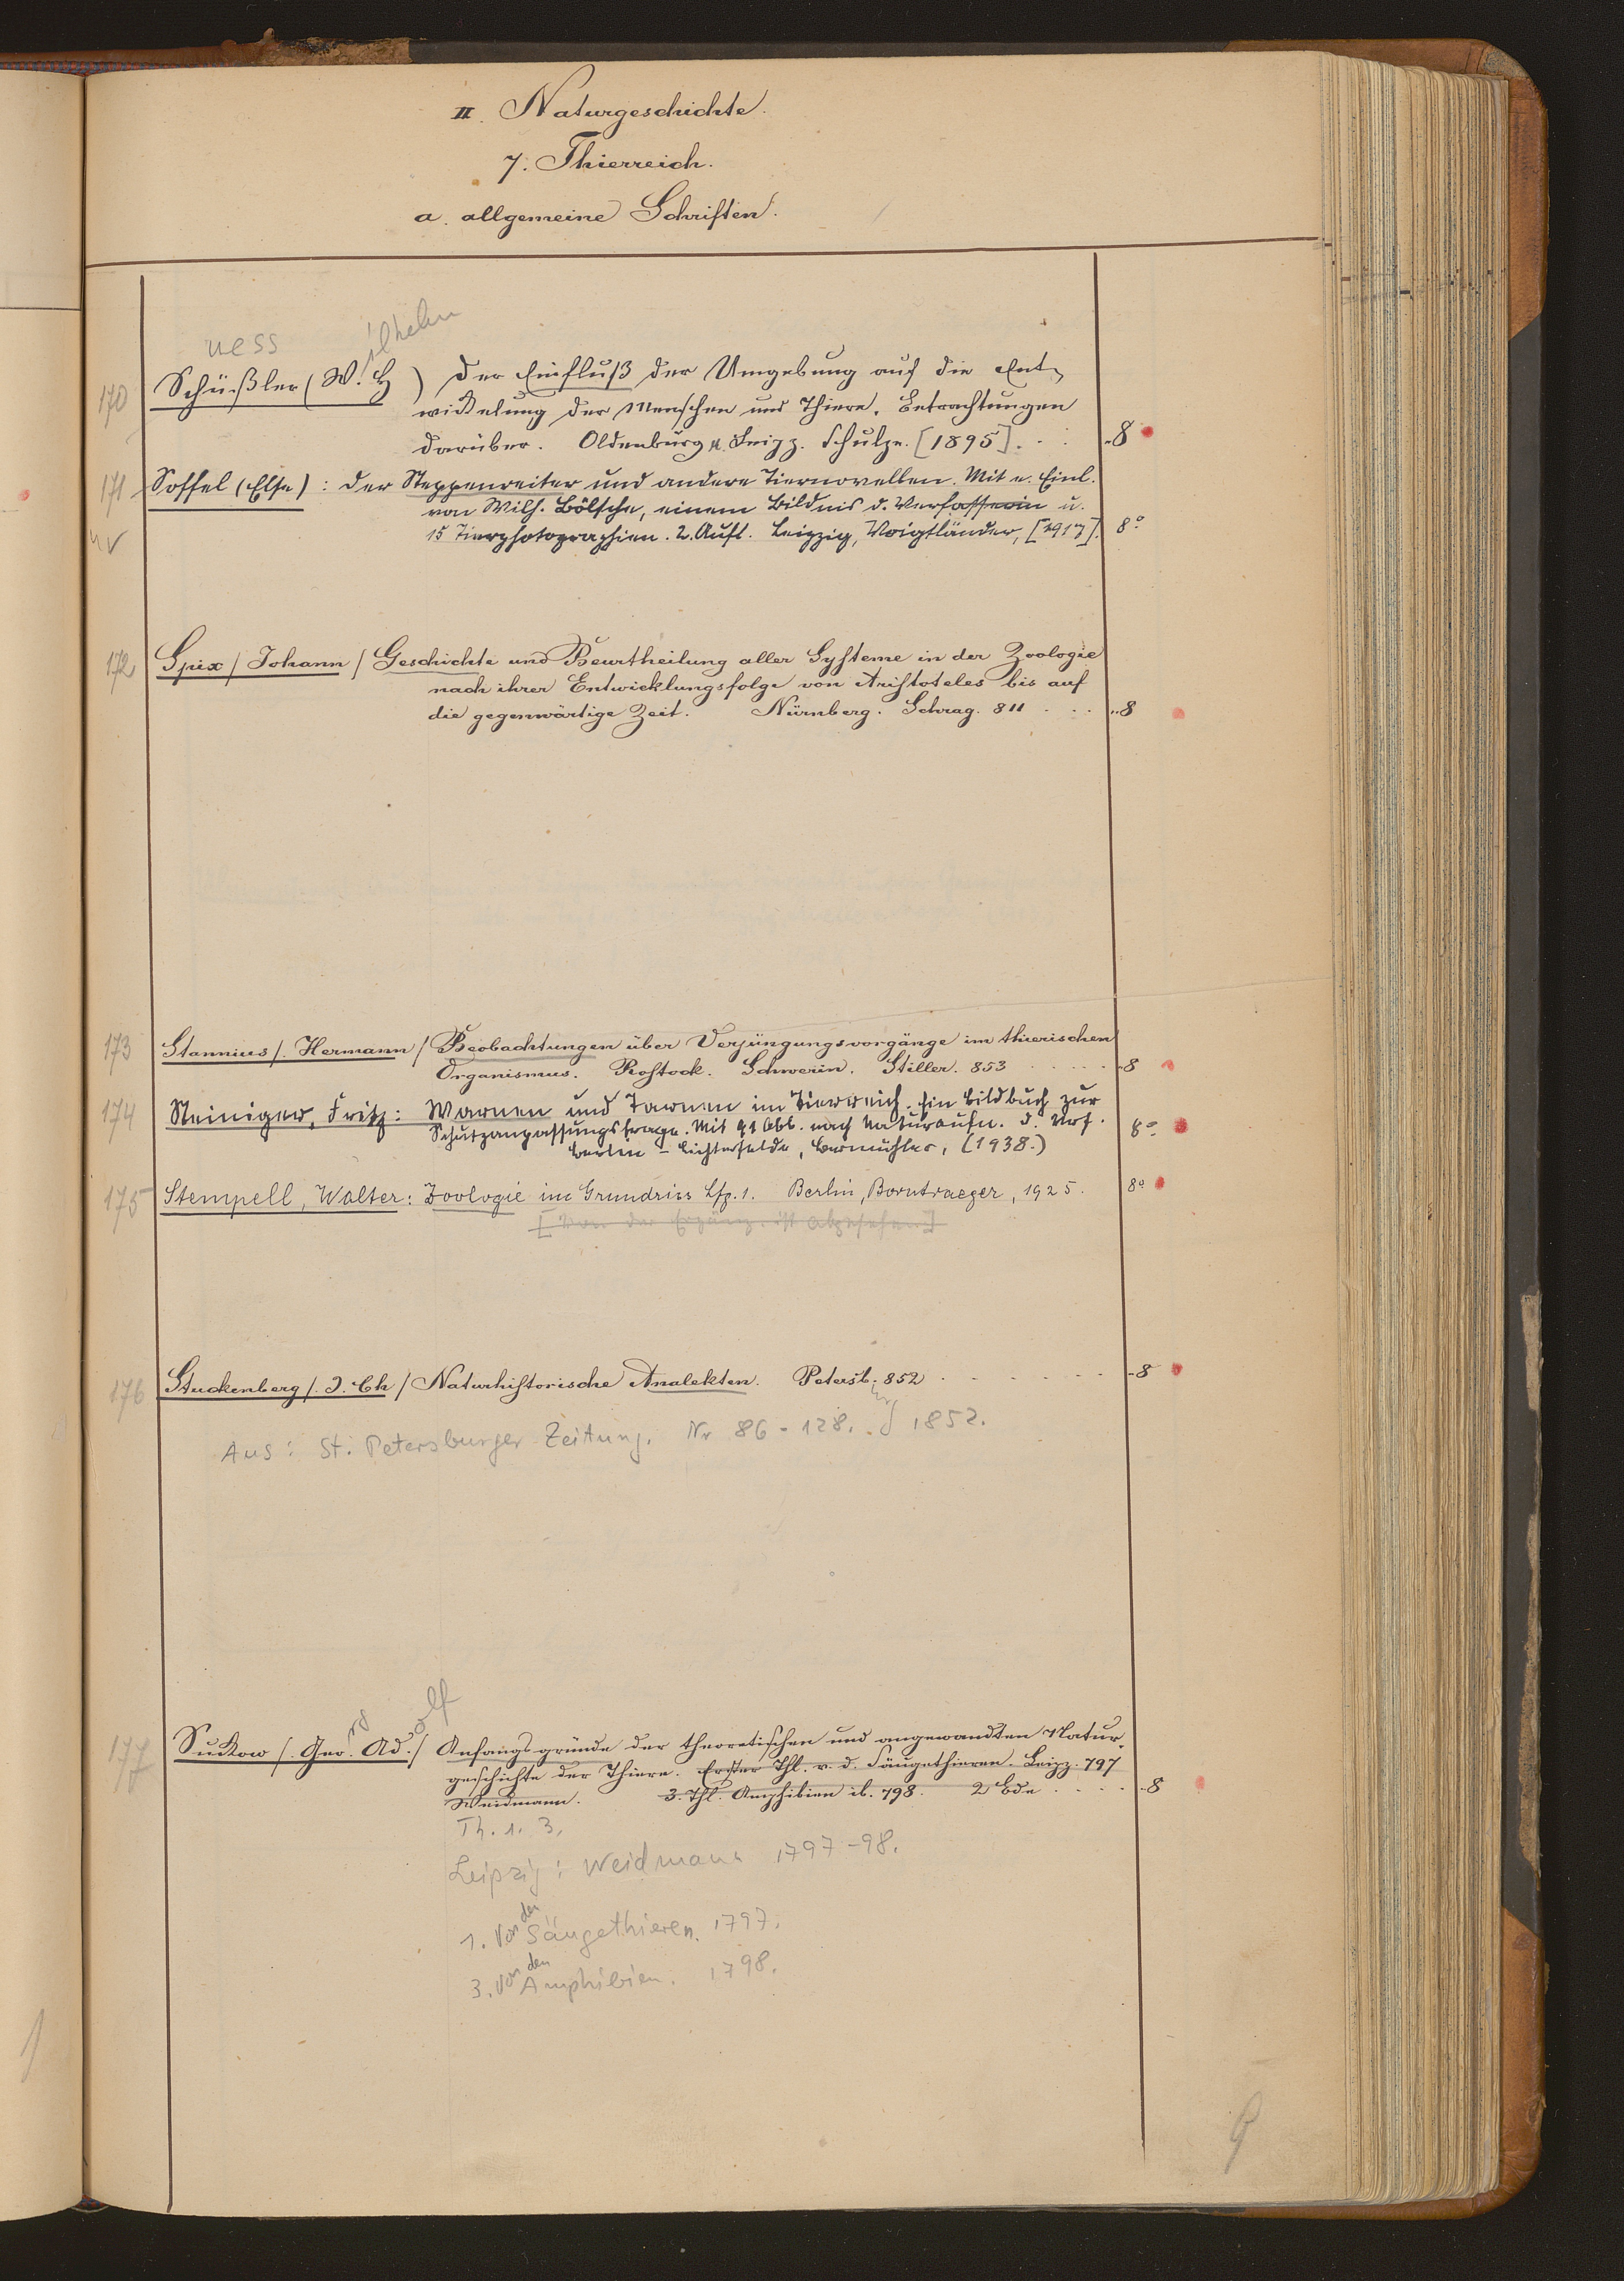 II. Naturgeschichte.
7. Thierreich.
a. allgemeine Schriften.
ness ilhelm
170 Schüßler (W. H ) Der Einfluß der Umgebung auf die Ent-
wickelung der Menschen und Thiere. Betrachtungen
darüber. Oldenburg u. Leipz. Schulze. [1895]. . . 8
171 Soffel (Else): Der Steppenreiter und andere Tiernovellen. Mit e. Einl.
von Wilh. Bölsche, einem Bildnis d. Verfasserin u.
15 Tierphotographien. 2. Aufl. Leipzig, Voigtländer, [1917]. 8°
172 Spix / Johann / Geschichte und Beurtheilung aller Systeme in der Zoologie
nach ihrer Entwicklungsfolge von Aristoteles bis auf
die gegenwärtige Zeit. Nürnberg. Schrag. 811 . . . 8
173 Stannius /. Hermann / Beobachtungen über Verjüngungsvorgänge im thierischen
Organismus. Rostock. Schwerin. Stiller. 853 . . . . . 8
174 Steiniger, Fritz: Warnen und Tarnen im Tierreich. Ein Bildbuch zur
Schutzanpassungsfrage. Mit 91 Abb. nach Naturaufn. d. Verf. 8°
Berlin-Lichterfelde, Bermühler, (1938.)
175 Stempell, Walter: Zoologie im Grundriss Lfg. 1. Berlin, Borntraeger, 1925. 8°
[Von der Ergänz. ist abgesehen]
176 Stuckenberg /. J. Ch / Naturhistorische Analekten. Petersb. 852 . . . . . . . 8
Aus: St. Petersburger Zeitung. Nr 86-128. 1852.
rg olf
177 Suckow /. Geo. Ad. / Anfangsgründe der theoretischen und angewandten Natur-
geschichte der Thiere. Erster Thl. v. d. Säugethieren. Leipz. 797
Weidmann. 3. Thl. Amphibien ib. 798. 2 Bde . . . . 8
Th. 1. 3.
Leipzig: Weidmann 1797-98.
1. Von den Säugethieren. 1797.
3. Von den Amphibien. 1798.